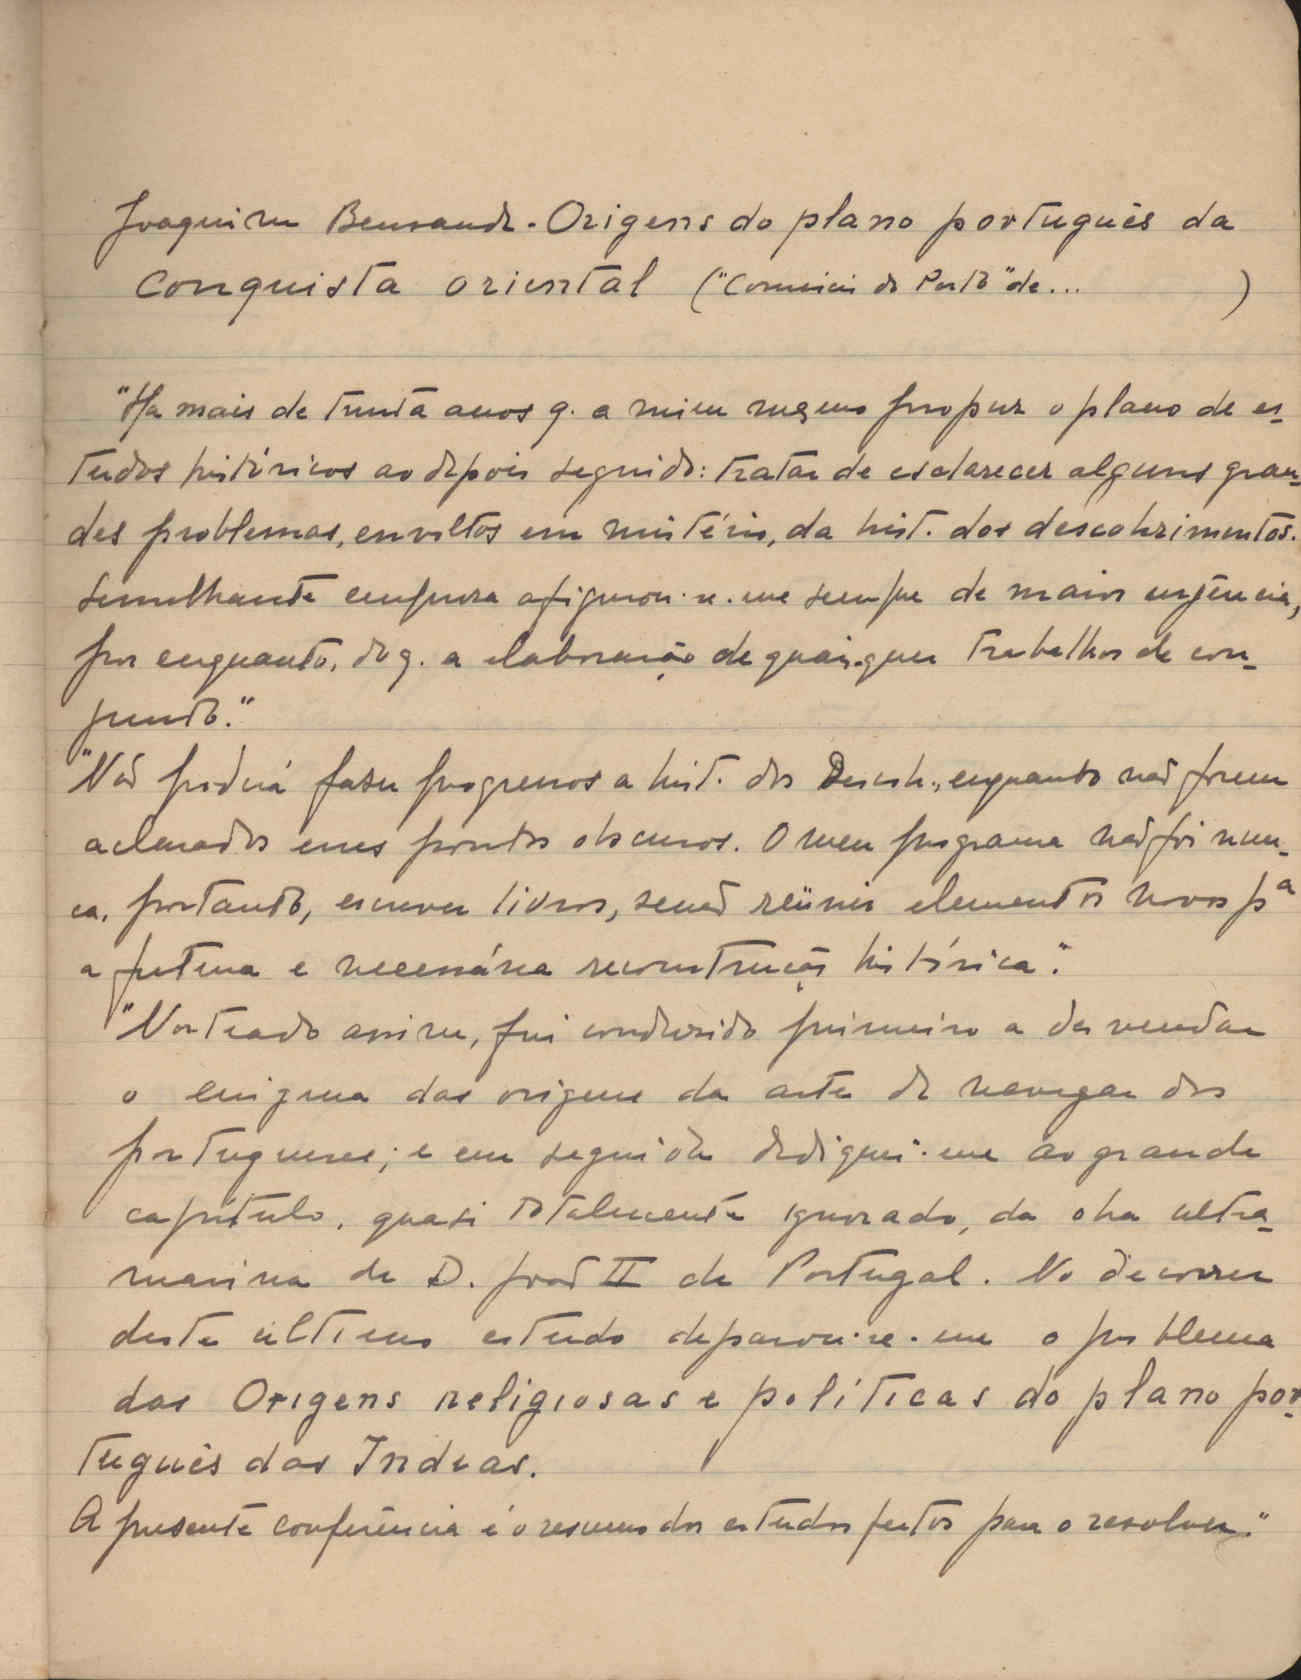 Joaquim Bensaude - Origens do plano português da
conquista oriental ("Comércio do Porto" de... )
"Ha mais de trinta anos q. a mim mesmo propuz o plano de es-
tudos históricos ao depois seguido: tratar de esclarecer alguns gran-
des problemas, envoltos em mistério, da hist. dos descobrimentos.
Semelhante empresa afigurou-se-me sempre de maior urgência,
por enquanto, do q. a elaboração de quaisquer trabalhos de con-
junto."
"Não poderá fazer progressos a hist. dos Descob., enquanto não forem
aclarados esses pontos obscuros. O meu programa não foi nun-
ca, portanto, escrever livros, senão reünir elementos novos pª
a futura e necessária reconstrução histórica."
"Norteado assim, fui conduzido primeiro a desvendar
o enigma das origens da arte de navegar dos
portugueses; e em seguida dediquei-me ao grande
capítulo, quasi totalmente ignorado, da obra ultra-
marina de D. João II de Portugal. No decorrer
deste último estudo deparou-se-me o problema
das Origens religiosas e políticas do plano por-
tuguês das Indias.
A presente conferência é o resumo dos estudos feitos para o resolver."